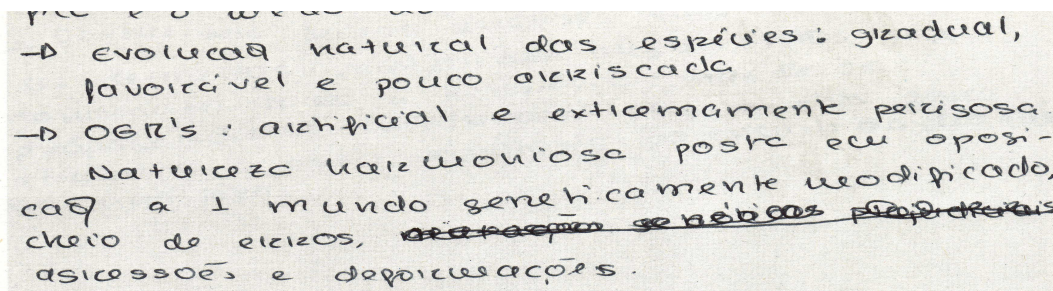 → evolucão natural das espécies: gradual,
favorável e pouco arriscada
→ OGR's: artificial e extremamente perigosa.
Natureza harmoniosa posta em oposi-
cão a 1 mundo geneticamente modificado,
cheio de erros,
agressões e deformações.